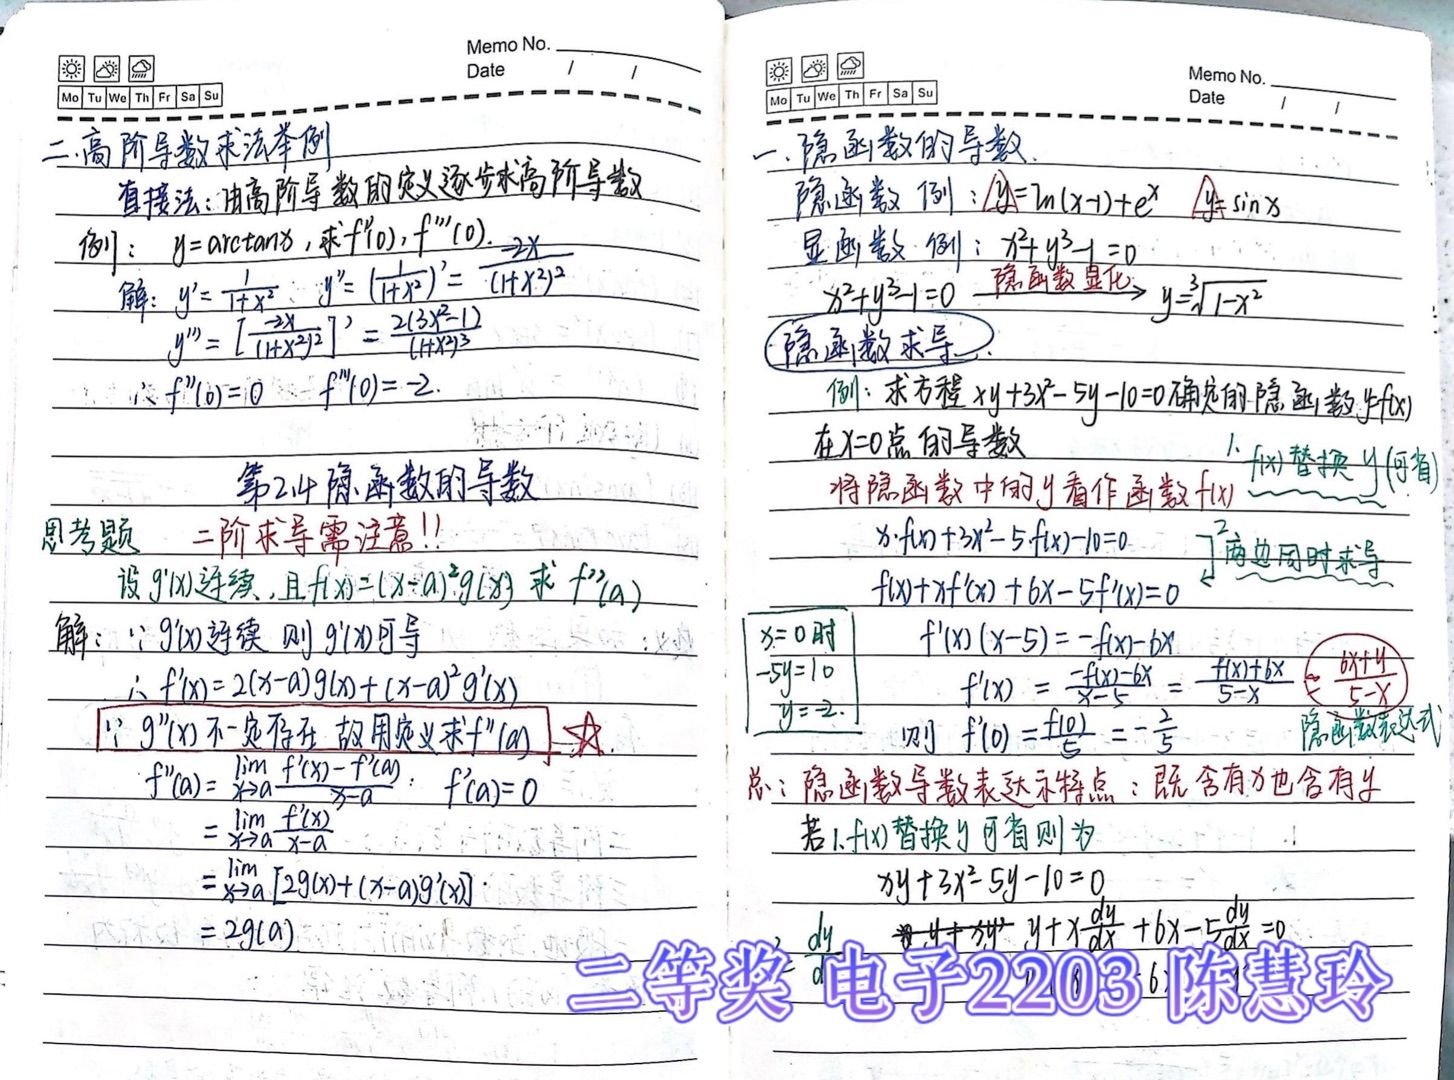 Memo No.
Date / /
Mo Tu We Th Fr Sa Su
二.高阶导数求法举例
直接法:由高阶导数的定义逐步求高阶导数
例1: y=arctanx,求f''(0),f'''(0).
解: y'=1/(1+x²) y''=(1/(1+x²))'=-2x/(1+x²)²
y'''=[-2x/(1+x²)²]'=2(3x²-1)/(1+x²)³
∴f''(0)=0 f'''(0)=-2.
第2.4 隐函数的导数
思考题 二阶求导需注意!!
设g'(x)连续,且f(x)=(x-a)²g(x) 求 f''(a)
解:∵g'(x)连续 则g'(x)可导
∴f'(x)=2(x-a)g(x)+(x-a)²g'(x)
∵g''(x)不一定存在 故用定义求f''(a) ☆
f''(a)=lim x→a (f'(x)-f'(a))/(x-a) f'(a)=0
=lim x→a f'(x)/(x-a)
=lim x→a [2g(x)+(x-a)g'(x)]
=2g(a)
Memo No.
Date / /
Mo Tu We Th Fr Sa Su
一.隐函数的导数.
隐函数 例:y=ln(x-1)+eˣ y=sinx
显函数 例:x²+y³-1=0
x²+y³-1=0 隐函数显化→ y=³√(1-x²)
隐函数求导.
例:求方程xy+3x²-5y-10=0确定的隐函数y=f(x)
在x=0点的导数
1. f(x)替换y(可省)
将隐函数中的y看作函数f(x)
x·f(x)+3x²-5·f(x)-10=0
2 两边同时求导
f(x)+xf'(x)+6x-5f'(x)=0
x=0时
-5y=10
y=-2.
f'(x)(x-5)=-f(x)-6x
f'(x)=(-f(x)-6x)/(x-5)=(f(x)+6x)/(5-x) (6x+y)/(5-x)
隐函数表达式
则 f'(0)=f(0)/5=-2/5
总:隐函数导数表达示特点:既含有x也含有y
若1.f(x)替换y可省则为
xy+3x²-5y-10=0
y+x dy/dx+6x-5 dy/dx=0
二等奖 电子2203 陈慧玲